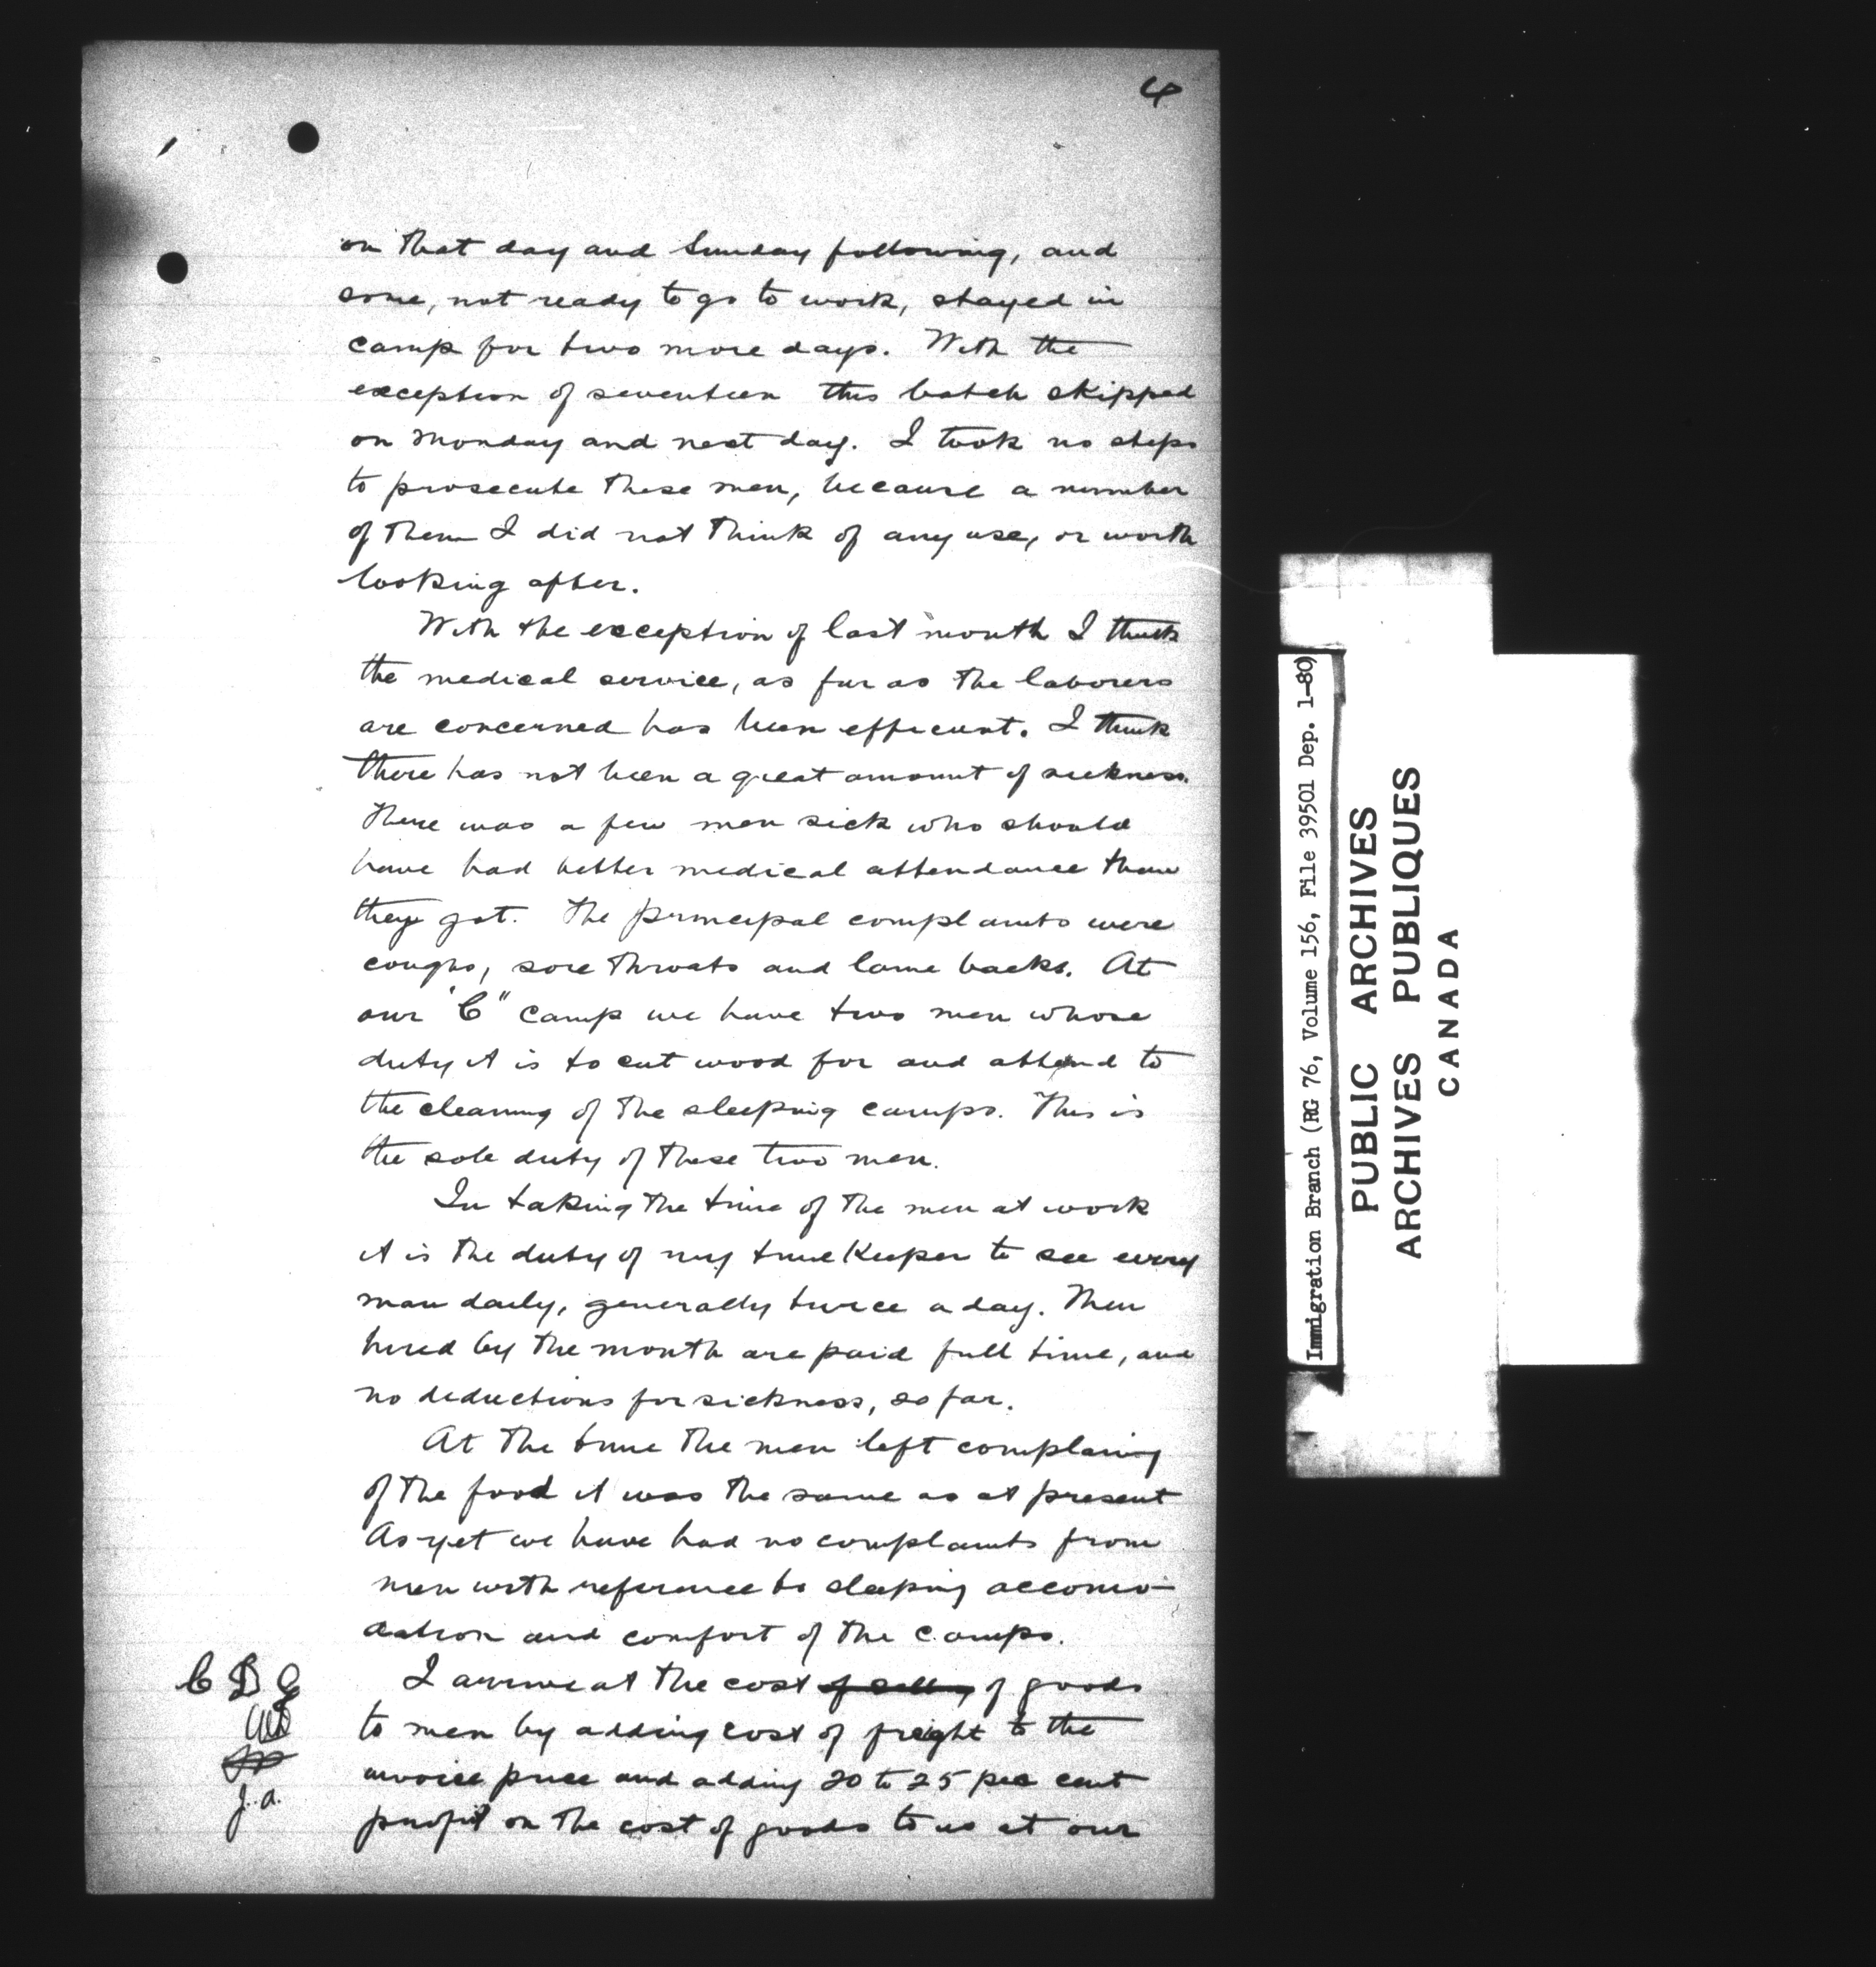 4
on that day and Sunday following, and
some, not ready to go to work, stayed in
camp for two more days. With the
exception of seventeen this batch skipped
on Monday and next day. I took no steps
to prosecute these men, because a number
of them I did not think of any use, or worth
looking after.
With the exception of last month I think
the medical service, as far as the laborers
are concerned has been efficient. I think
there has not been a great amount of sickness.
There was a few men sick who should
have had better medical attendance than
they got. The principal complaints were
coughs, sore throats and lame backs. At
our "C" camp we have two men whose
duty it is to cut wood for and attend to
the cleaning of the sleeping camps. This is
the sole duty of these two men.
In taking the time of the men at work
it is the duty of my time Keeper to see every
man daily, generally twice a day. Men
hired by the month are paid full time, and
no deductions for sickness, so far.
At the time the men left complaining
of the food it was the same as at present
As yet we have had no complaints from
men with reference to sleeping accomo-
dation and comfort of the camps.
C D G
J. a.
I arrive at the cost of selling of goods
to men by adding cost of freight to the
invoice price and adding 20 to 25 per cent
profit on the cost of goods to us at our
Immigration Branch (RG 76, Volume 156, File 39501 Dep. 1-80)
PUBLIC ARCHIVES
ARCHIVES PUBLIQUES
CANADA